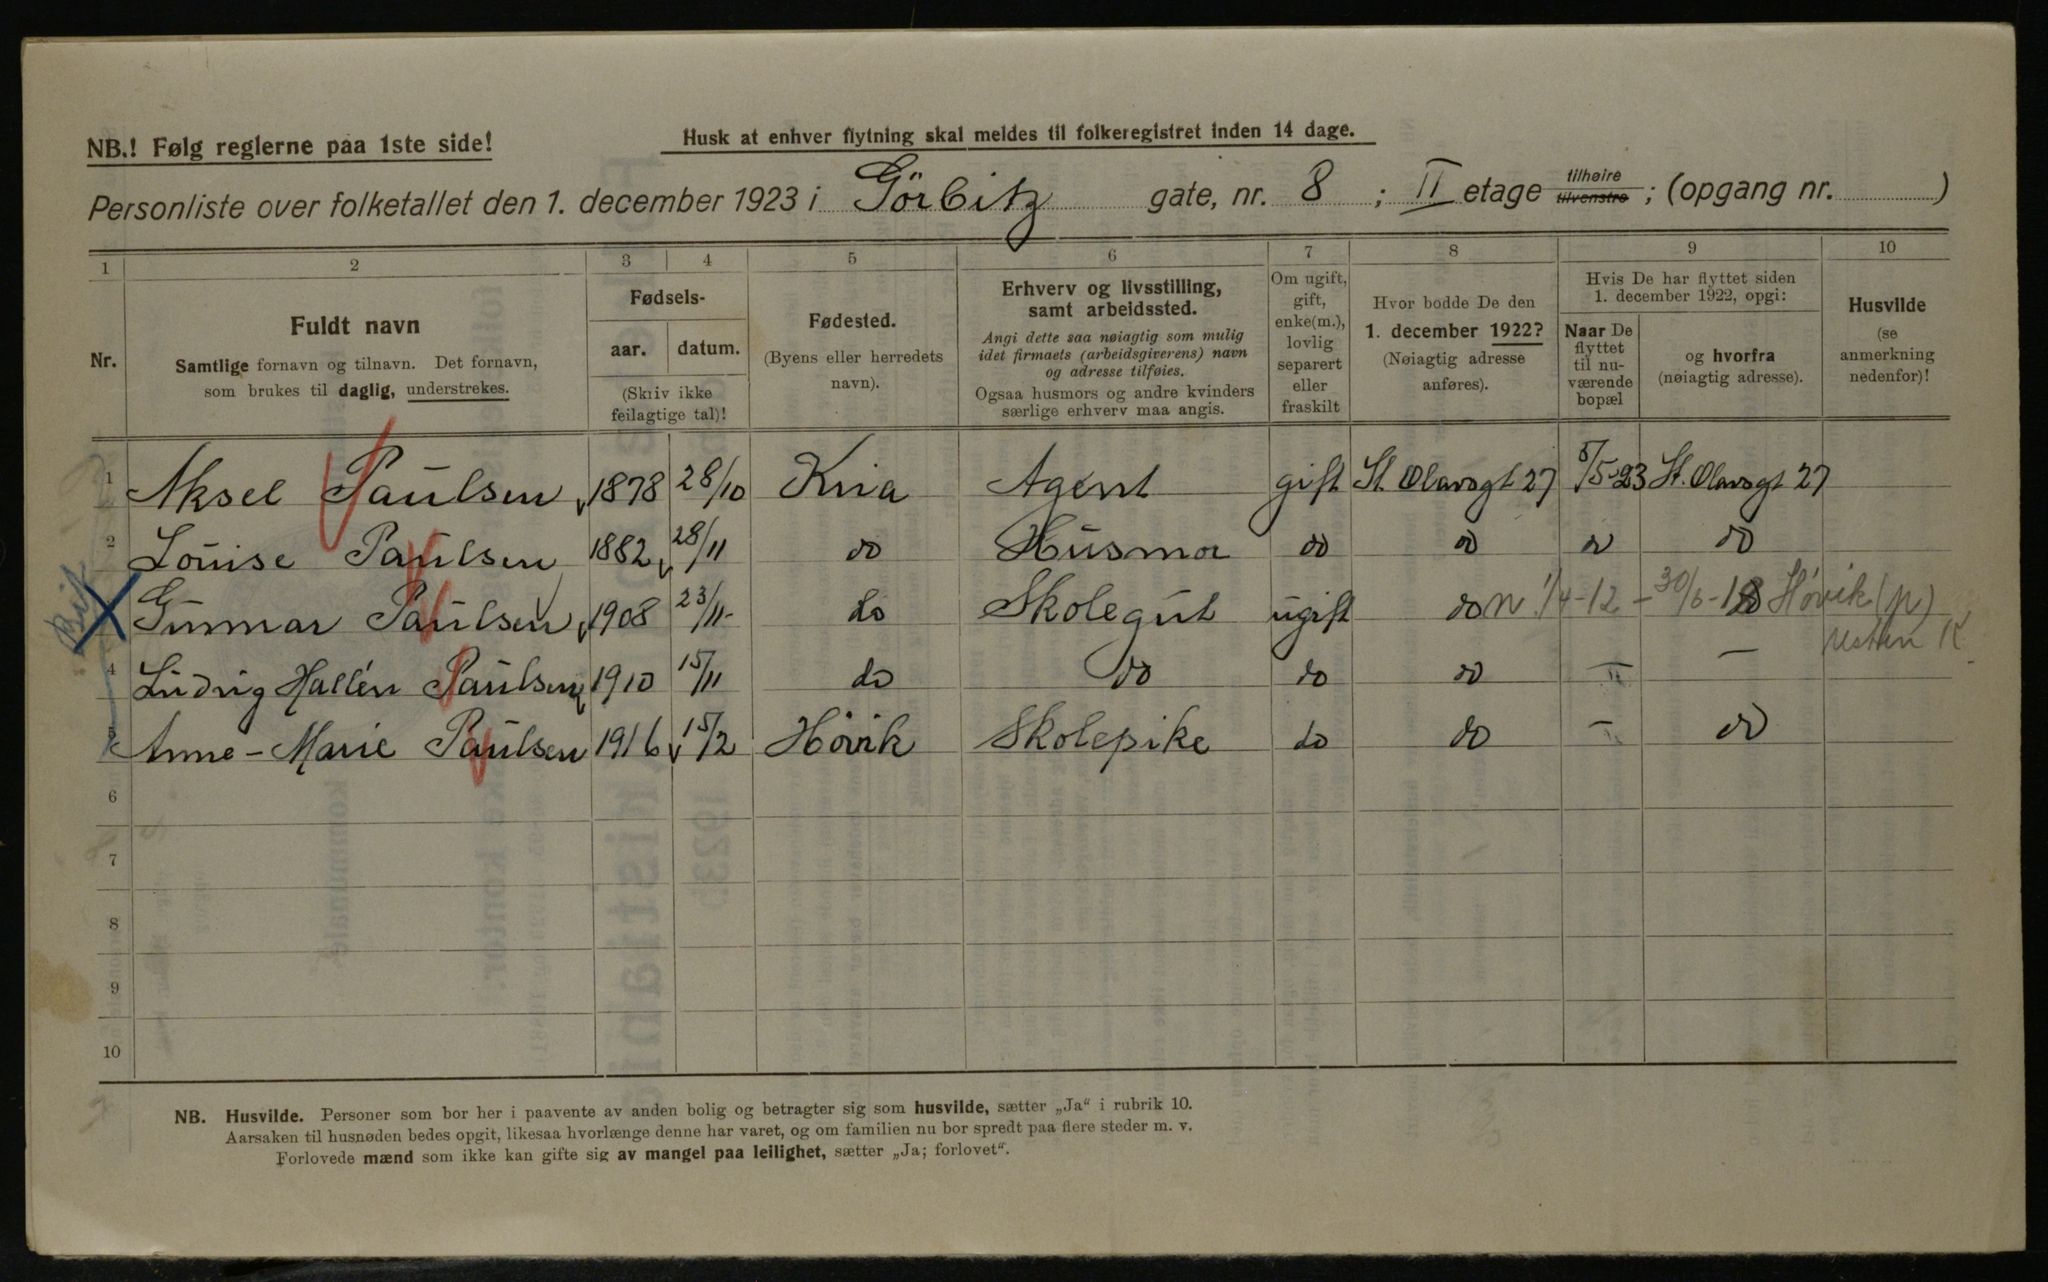 NB.! Følg reglerne paa 1ste side!
Husk at enhver flytning skal meldes til folkeregistret inden 14 dage.
Personliste over folketallet den 1. december 1923 i Görbitz gate, nr. 8 ; II etage tilhøire tilvenstre ; (opgang nr. )
1 2 3 4 5 6 7 8 9 10
Nr.
Fuldt navn
Samtlige fornavn og tilnavn. Det fornavn,
som brukes til daglig, understrekes.
Fødsels-
aar. datum.
(Skriv ikke
feilagtige tal)!
Fødested.
(Byens eller herredets
navn).
Erhverv og livsstilling,
samt arbeidssted.
Angi dette saa nøiagtig som mulig
idet firmaets (arbeidsgiverens) navn
og adresse tilføies.
Ogsaa husmors og andre kvinders
særlige erhverv maa angis.
Om ugift,
gift,
enke(m.),
lovlig
separert
eller
fraskilt
Hvor bodde De den
1. december 1922?
(Nøiagtig adresse
anføres).
Hvis De har flyttet siden
1. december 1922, opgi:
Naar De
flyttet
til nu-
værende
bopæl
og hvorfra
(nøiagtig adresse).
Husvilde
(se
anmerkning
nedenfor)!
1 Aksel Paulsen 1878 28/10 Kria Agent gift St. Olavsgt 27 5/5-23 St. Olavsgt 27
2 Louise Paulsen 1882 28/11 do Husmor do do do do
Gunnar Paulsen 1908 23/11 do Skolegut ugift do 1/4-12 - 30/6-18 Høvik (p)
4 Ludvig Hallén Paulsen 1910 15/11 do do do do " —
5 Anne-Marie Paulsen 1916 15/2 Hövik Skolepike do do " do
6
7
8
9
10
NB. Husvilde. Personer som bor her i paavente av anden bolig og betragter sig som husvilde, sætter „Ja“ i rubrik 10.
Aarsaken til husnøden bedes opgit, likesaa hvorlænge denne har varet, og om familien nu bor spredt paa flere steder m. v.
Forlovede mænd som ikke kan gifte sig av mangel paa leilighet, sætter „Ja; forlovet“.